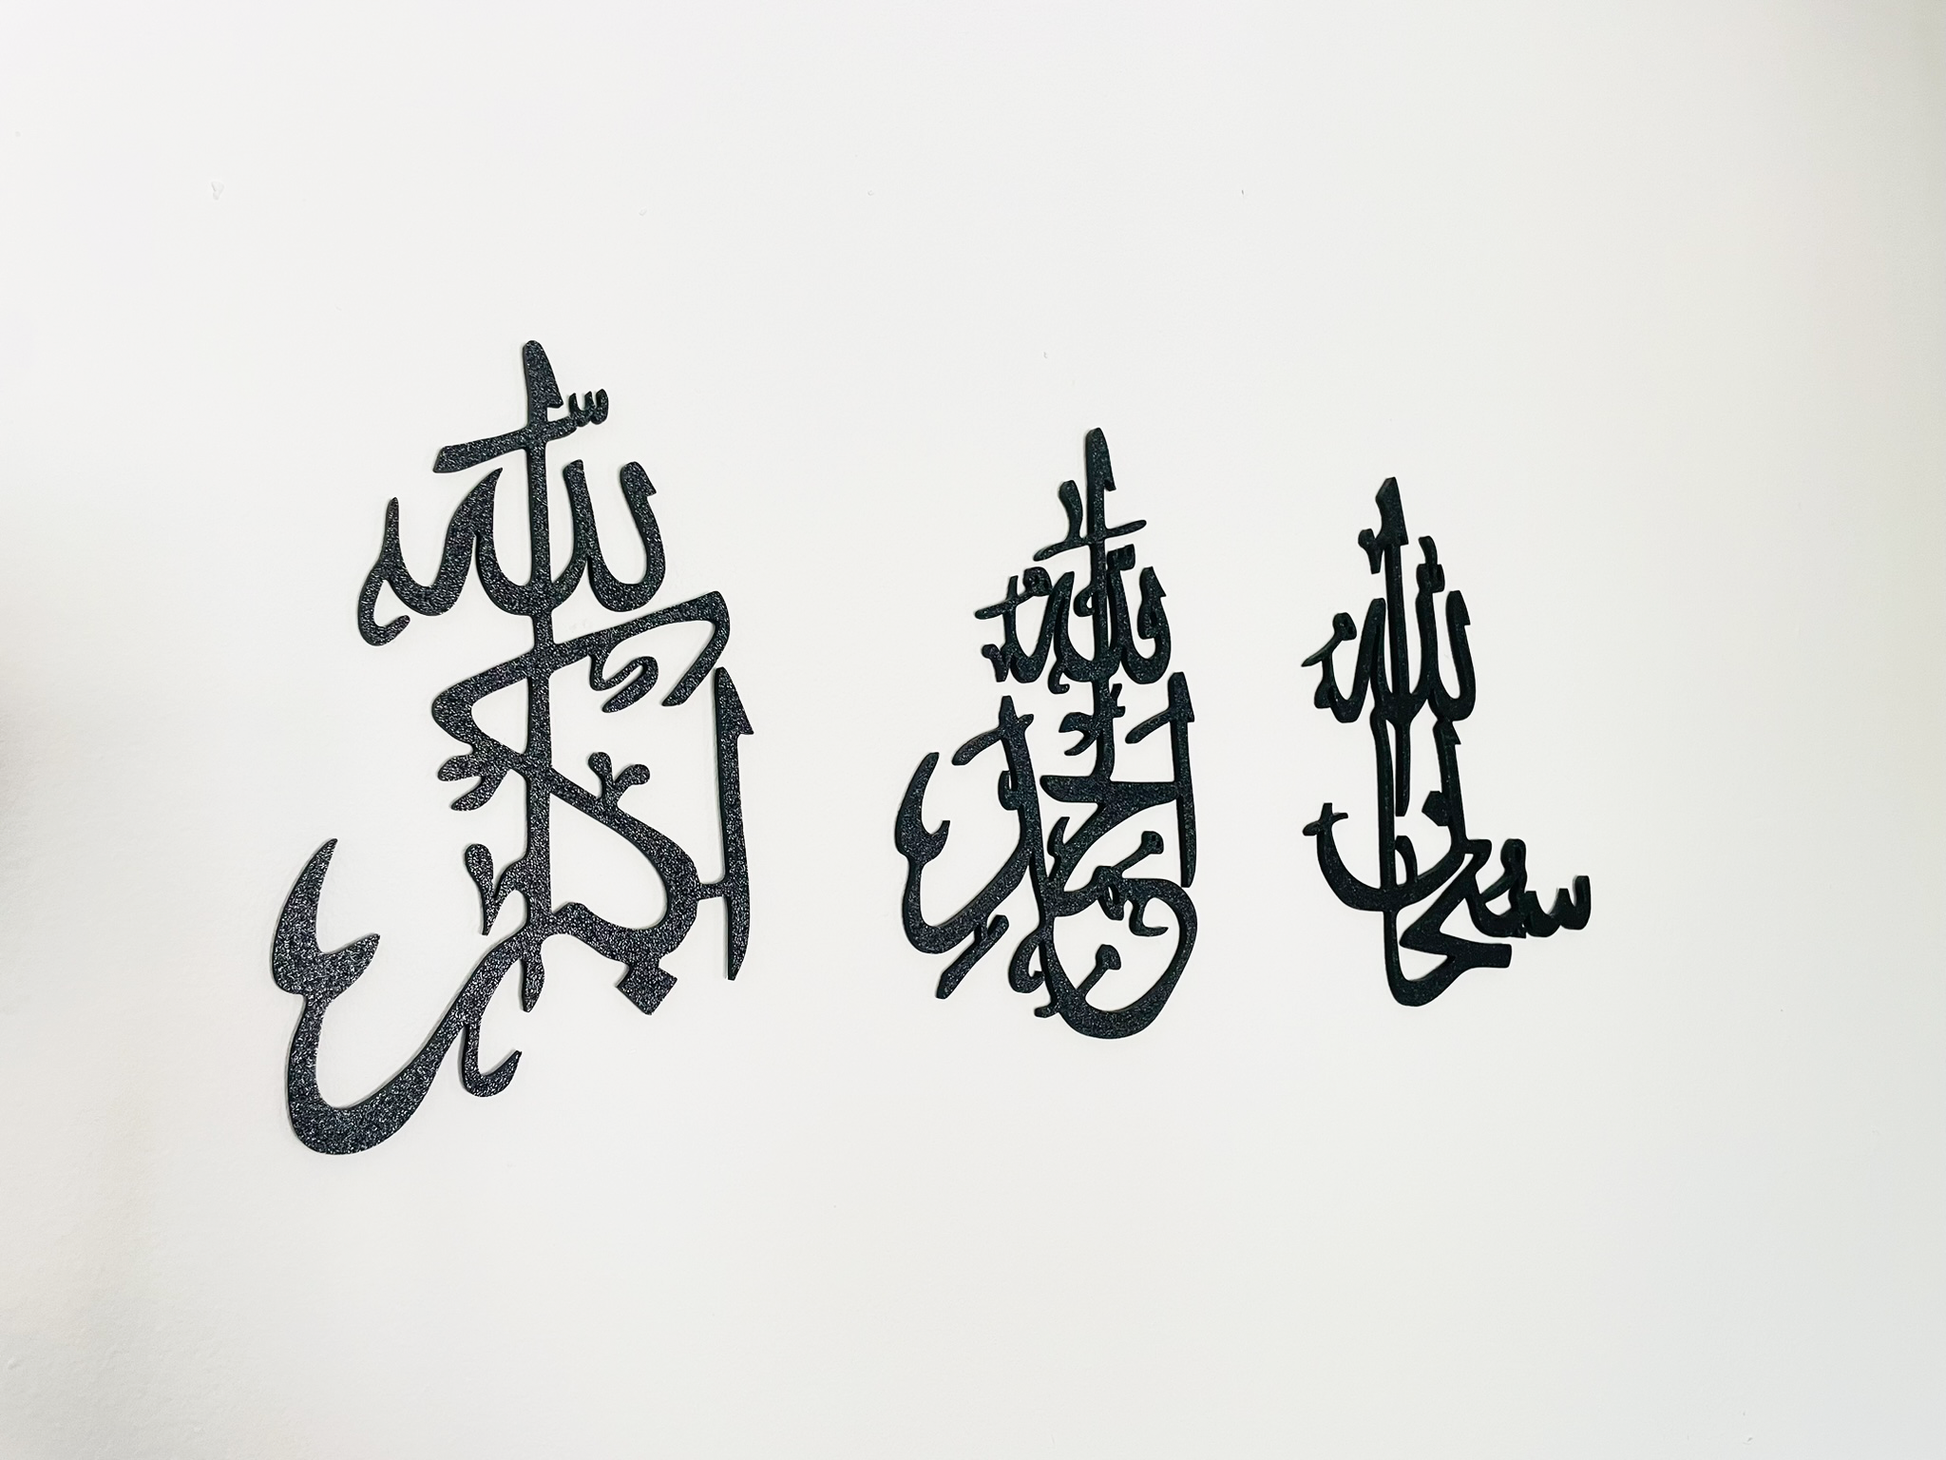 سبحان الله
الحمد لله
الله أكبر